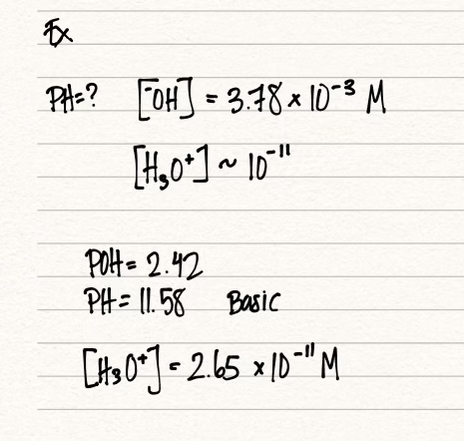 Ex
PH=? [⁻OH] = 3.78 × 10⁻³ M
[H₃O⁺] ~ 10⁻¹¹
POH = 2.42
PH = 11.58 Basic
[H₃O⁺] = 2.65 × 10⁻¹¹ M